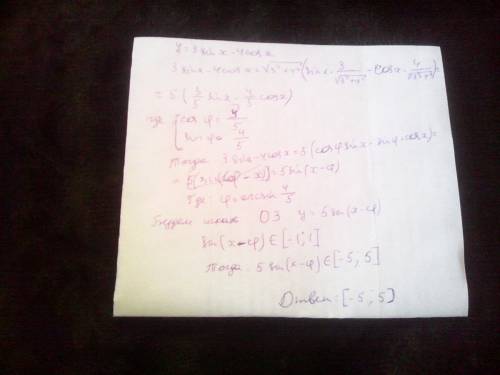 y = 3 sin x - 4 cos x
3 sin x - 4 cos x = √3²+4² (sin x · 3/√3²+4² - cos x · 4/√3²+4²) =
= 5 (3/5 sin x - 4/5 cos x)
где { cos φ =
{ sin φ = 4/5
тогда 3 sin x - 4 cos x = 5 (cos φ sin x - sin φ cos x) =
= 5 sin (x - φ)
где: φ = arcsin 4/5
Будем искать ОЗ y = 5 sin (x - φ)
sin (x - φ) ∈ [-1; 1]
тогда: 5 sin (x - φ) ∈ [-5; 5]
Ответ: [-5; 5]